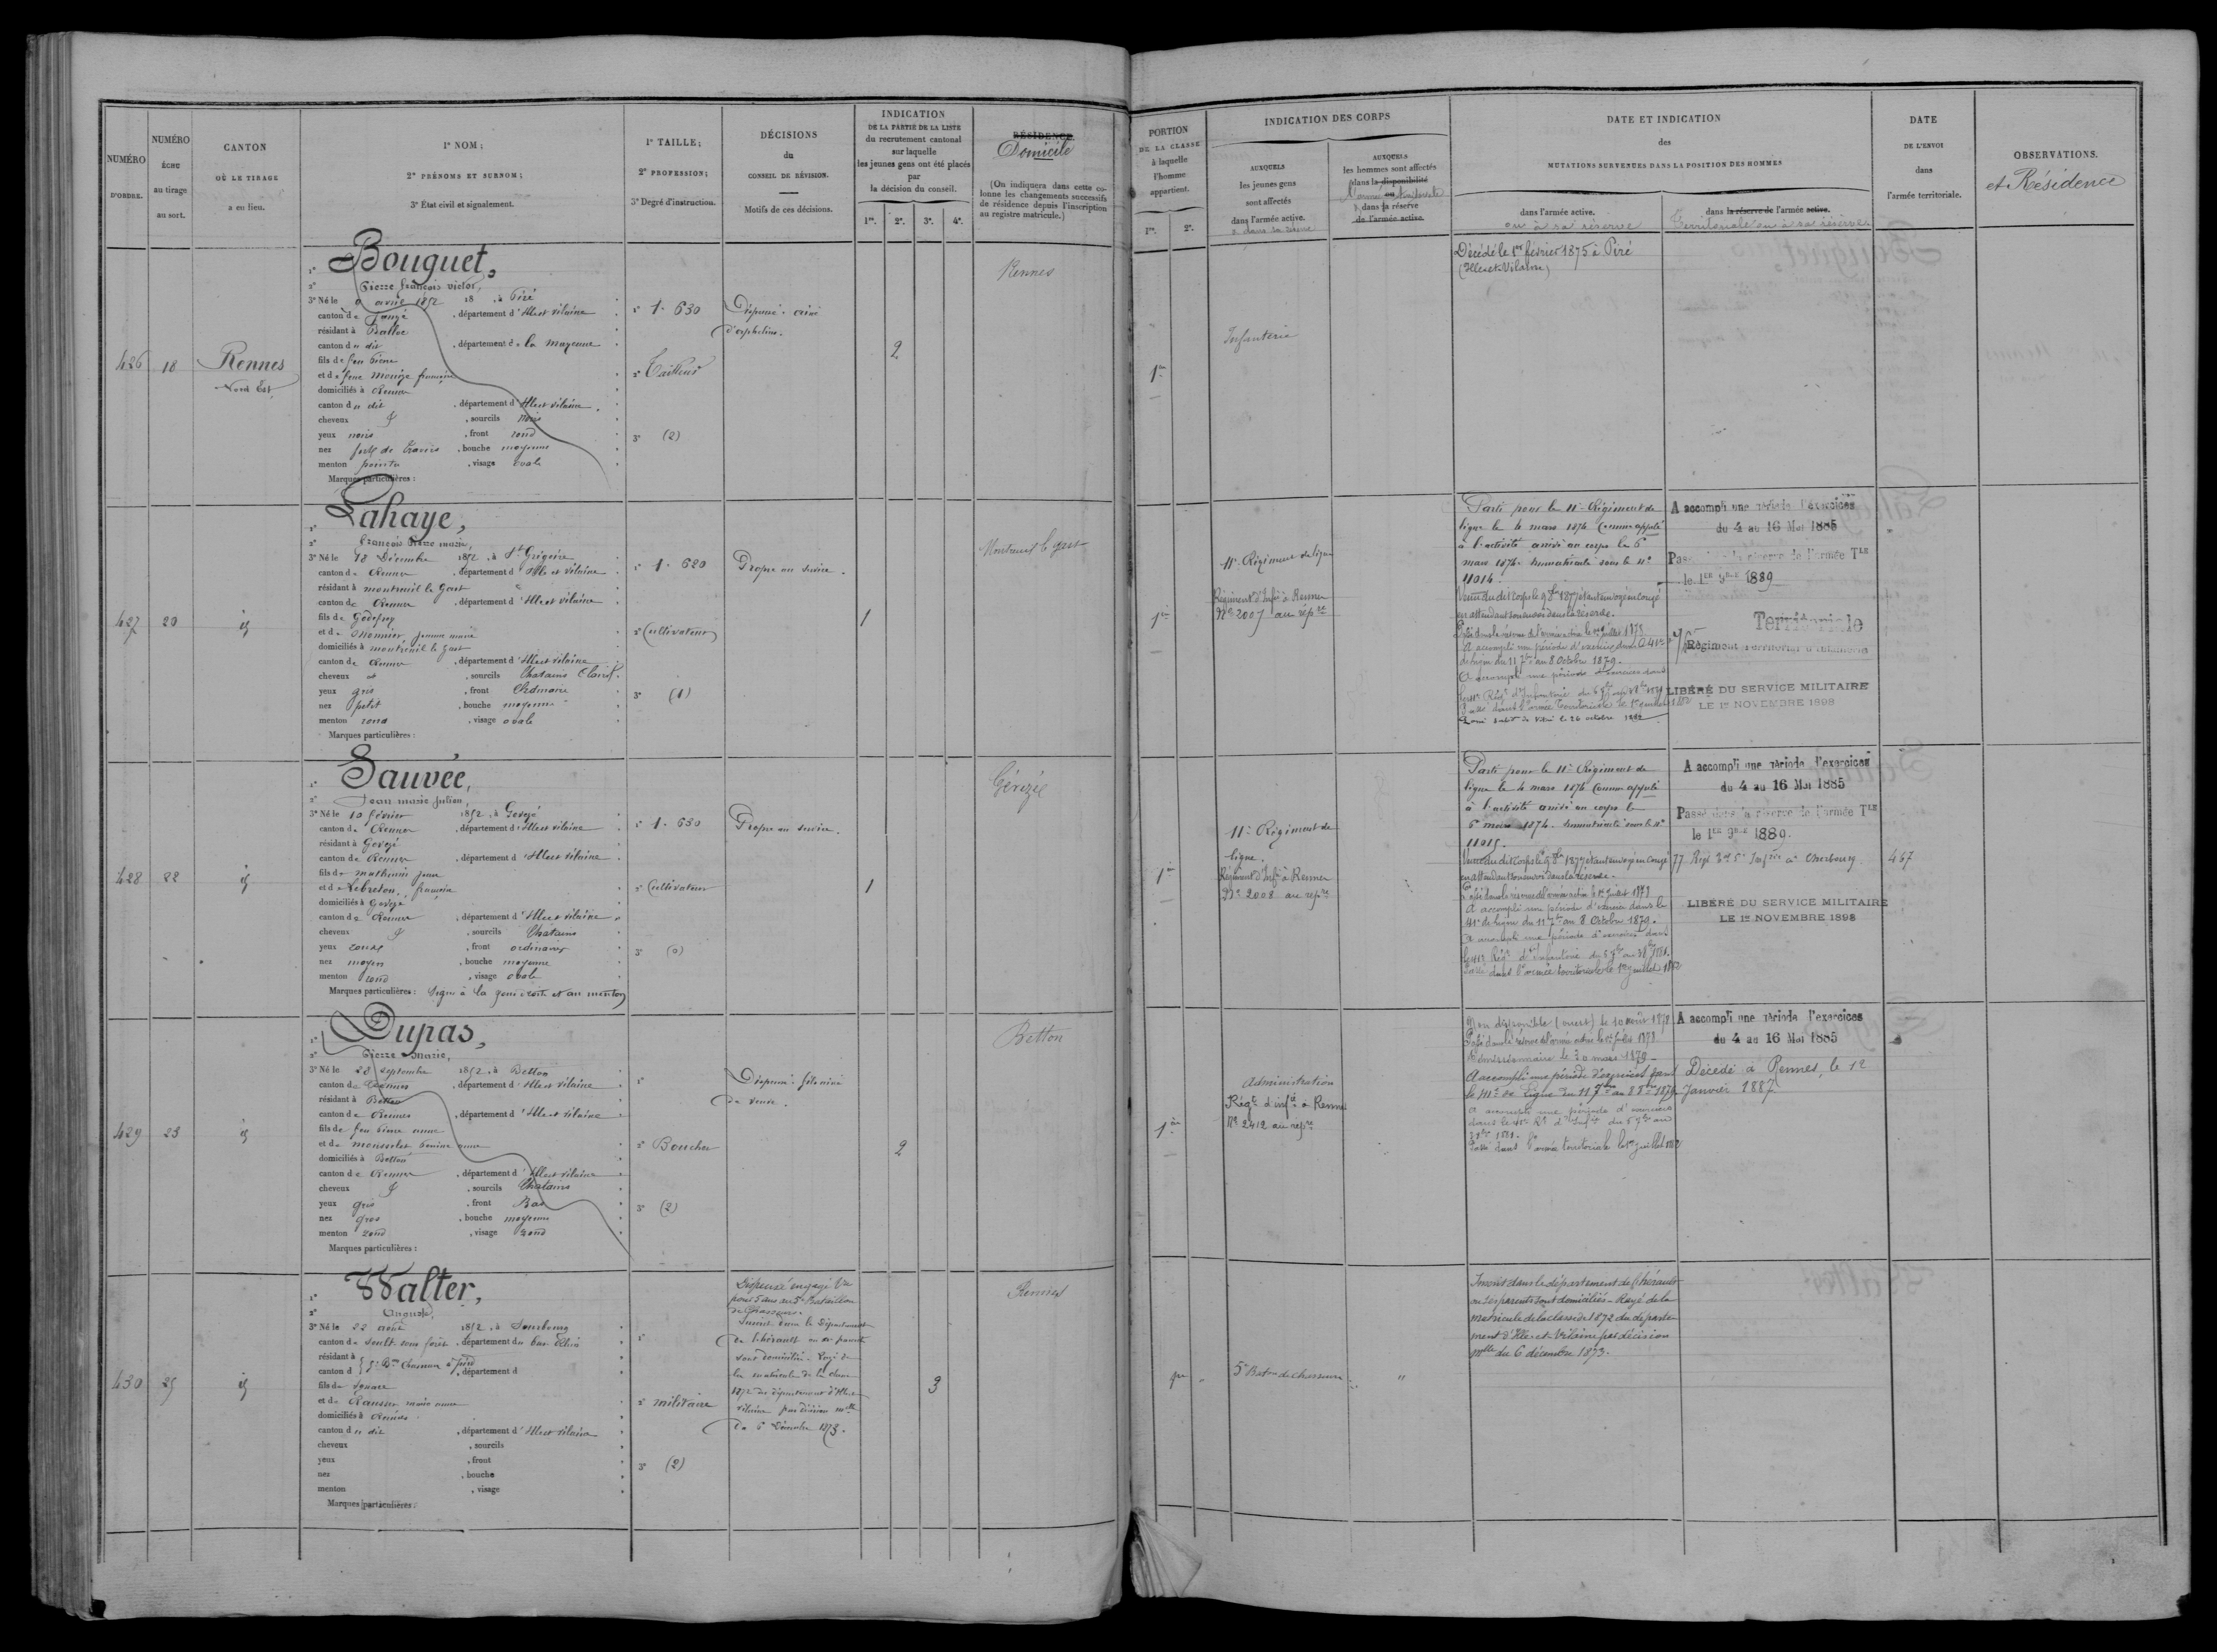 NUMÉRO
D'ORDRE.
NUMÉRO
ÉCHU
au tirage
au sort.
CANTON
OÙ LE TIRAGE
a eu lieu.
1° NOM;
2° PRÉNOMS ET SURNOM;
3° État civil et signalement.
1° TAILLE;
2° PROFESSION;
3° Degré d'instruction.
DÉCISIONS
du
CONSEIL DE RÉVISION.
Motifs de ces décisions.
INDICATION
DE LA PARTIE DE LA LISTE
du recrutement cantonal
sur laquelle
les jeunes gens ont été placés
par
la décision du conseil.
1re. 2e. 3e. 4e.
RÉSIDENCE.
Domicile
(On indiquera dans cette co-
lonne les changements successifs
de résidence depuis l'inscription
au registre matricule.)
PORTION
DE LA CLASSE
à laquelle
l'homme
appartient.
1re. 2e.
INDICATION DES CORPS
AUXQUELS
les jeunes gens
sont affectés
dans l'armée active.
AUXQUELS
les hommes sont affectés
dans la disponibilité
ou
dans la réserve
de l'armée active.
DATE ET INDICATION
des
MUTATIONS SURVENUES DANS LA POSITION DES HOMMES
dans l'armée active.
ou à sa réserve
dans la réserve de l'armée active.
Territoriale ou à sa réserve.
DATE
DE L'ENVOI
dans
l'armée territoriale.
OBSERVATIONS.
et Résidence
426
18
Rennes
Nord Est.
1° Bouguet,
2° Pierre françois victor,
3° Né le 9 avril 1852 18 , à Piré
canton de Janzé , département d'Ille et vilaine
résidant à
canton du dit , département de la mayenne
fils de feu Pierre
et de feue françoise
domiciliés à Rennes
canton du dit , département d'Ille et vilaine
cheveux & , sourcils noirs
yeux noirs , front rond
nez , bouche moyenne
menton pointu , visage ovale
Marques particulières :
1° 1. 630
2° Tailleur
3° (2)
Dispensé. ainé
d'orphelins.
2
Rennes
1re
Infanterie
Décédé le 1er février 1875 à Piré
(Ille et Vilaine)
427
20
id
1° Lahaye,
2° françois Pierre marie,
3° Né le 18 Décembre 1852 , à St Grégoire
canton de Rennes , département d'Ille et vilaine
résidant à montreuil le Gast
canton de Rennes , département d'Ille et vilaine
fils de Godefroy
et de Monnier jeanne marie
domiciliés à montreuil le gast
canton de Rennes , département d'Ille et vilaine
cheveux et , sourcils Chatains Clairs
yeux gris , front Ordinaire
nez petit , bouche moyenne
menton rond , visage ovale
Marques particulières :
1° 1. 620
2° Cultivateur
3° (1)
Propre au service.
1
Montreuil le gast
1re
11e Régiment de ligne
Régiment d'Infie à Rennes
No 2007 au répre
Parti pour le 11e Régiment de
ligne le 4 mars 1874 Comme appelé
à l'activité arrivé au corps le 6
mars 1874. Immatriculé sous le no
11014.
en attendant son envoi dans la réserve.
Passé dans la réserve de l'armée active le 1er juillet 1878.
A accompli une période d'exercice dans le 41e
de ligne du 11 7bre au 8 Octobre 1879.
A accompli une période d'exercices dans
Passé dans l'armée territoriale le 1er juillet 1882
A accompli une période d'exercices
du 4 au 16 Mai 1885
Passé dans la réserve de l'armée Tle
le 1er 9bre 1889
Territoriale
Régiment Territorial d'Infanterie
LIBÉRÉ DU SERVICE MILITAIRE
LE 1er NOVEMBRE 1898
428
22
id
1° Sauvée,
2° Jean marie Julien,
3° Né le 10 février 1852 , à Gevezé
canton de Rennes , département d'Ille et vilaine
résidant à Gevezé
canton de Rennes , département d'Ille et vilaine
fils de mathurin jean
et de Lebreton, françoise
domiciliés à Gevezé
canton de Rennes , département d'Ille et vilaine
cheveux & , sourcils Chatains
yeux , front ordinaire
nez moyen , bouche moyenne
menton rond , visage ovale
Marques particulières : Signe à la joue droite et au menton
1° 1. 630
2° Cultivateur
3° (0)
Propre au service.
1
Gévezé
1re
11e Régiment de
ligne.
Régiment d'Infie à Rennes
No 2008 au répre
Parti pour le 11e Régiment de
ligne le 4 mars 1874 Comme appelé
à l'activité arrivé au corps le
6 mars 1874. Immatriculé sous le no
11015.
en attendant son envoi dans la réserve.
Passé dans la réserve de l'armée active le 1er juillet 1878
A accompli une période d'exercice dans le
41e de ligne du 11 7bre au 8 Octobre 1879.
A accompli une période d'exercices dans
Passé dans l'armée territoriale le 1er juillet 1882
A accompli une période d'exercices
du 4 au 16 Mai 1885
Passé dans la réserve de l'armée Tle
le 1er 9bre 1889.
LIBÉRÉ DU SERVICE MILITAIRE
LE 1er NOVEMBRE 1898
467
429
23
id
1° Dupas,
2° Pierre Marie,
3° Né le 28 septembre 1852 , à Betton
canton de Rennes , département d'Ille et vilaine
résidant à Betton
canton de Rennes , département d'Ille et vilaine
fils de feu Pierre
et de anne
domiciliés à Betton
canton de Rennes , département d'Ille et vilaine
cheveux & , sourcils Chatains
yeux gris , front Bas
nez gros , bouche moyenne
menton rond , visage rond
Marques particulières :
1°
2° Boucher
3° (2)
Dispensé. fils ainé
de veuve.
2
Betton
1re
Administration
Régt d'infie à Rennes
No 2412 au répre
Non disponible (ouest) le 10 août 1878.
Passé dans la réserve de l'armée active le 1er juillet 1878
Démissionnaire le 30 mars 1879
A accompli une période d'exercices dans
le 41e de Ligne du 11 7bre au 8 8bre 1879
A accompli une période d'exercices
Passé dans l'armée territoriale le 1er juillet 1882
A accompli une période d'exercices
du 4 au 16 Mai 1885
Décédé à Rennes, le 12
Janvier 1887
430
25
id
1° Walter,
2° Auguste,
3° Né le 22 août 1852 , à Sourbourg
canton de Soultz sous forêts , département du bas Rhin
résidant à
canton d , département d
fils de Ignace
et de marie anne
domiciliés à Rennes
canton du dit , département d'Ille et vilaine
cheveux , sourcils
yeux , front
nez , bouche
menton , visage
Marques particulières :
1°
2° militaire
3° (2)
Dispensé engagé Vre
pour 5 ans au 5e Bataillon
de Chasseurs.
Inscrit dans le Département
de l'hérault ou ses parents
sont domiciliés. Rayé de
la matricule de la classe
1872 du département d'Ille et
vilaine par décision mlle
du 6 Décembre 1873.
3
Rennes
1re
5e Baton de chasseurs
"
Inscrit dans le département de l'hérault
ou ses parents sont domiciliés - Rayé de la
matricule de la classe de 1872 du départe-
ment d'Ille-et-Vilaine par décision
mlle du 6 décembre 1873.